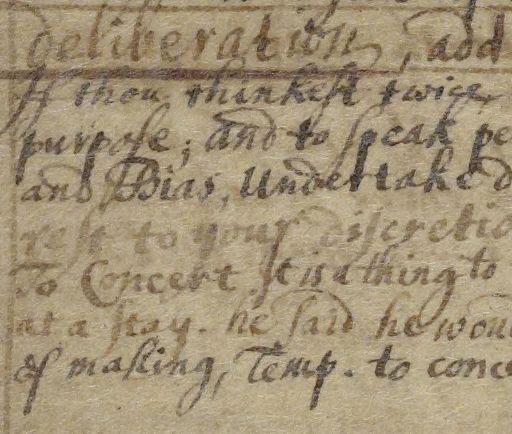 deliberation, add
If thou thinkest twice
purpose; and to speak pe
and Bias, Undertake d
rest to your discretio
To Concert It is a thing to
at a stay. he said he wou
of making, Temp. to conce